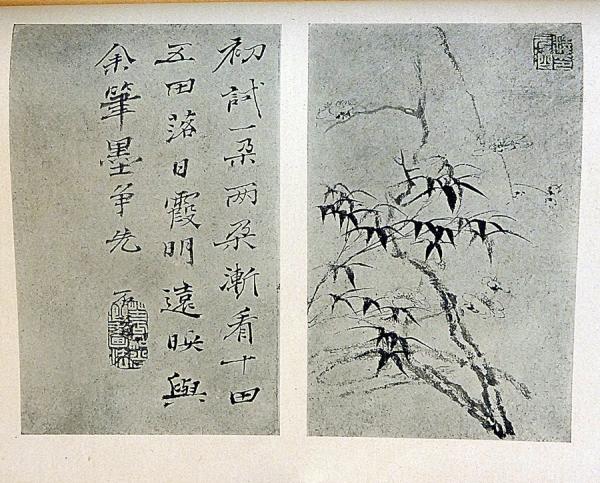 初試一朶两朶漸看十田
五田落日霞明遠映與
余筆墨争先